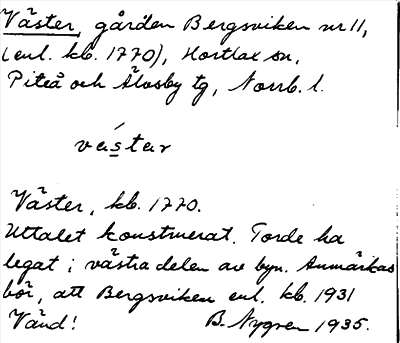 Väster, gården Bergsviken nr 11,
(enl. kb. 1770), Hortlax sn,
Piteå och Älvsby tg, Norrb. l.
vástar
Väster, kb. 1770.
Uttalet konstruerat. Torde ha
legat i västra delen av byn. Anmärkas
bör, att Bergsviken enl. kb. 1931
Vänd! B. Nygren 1935.